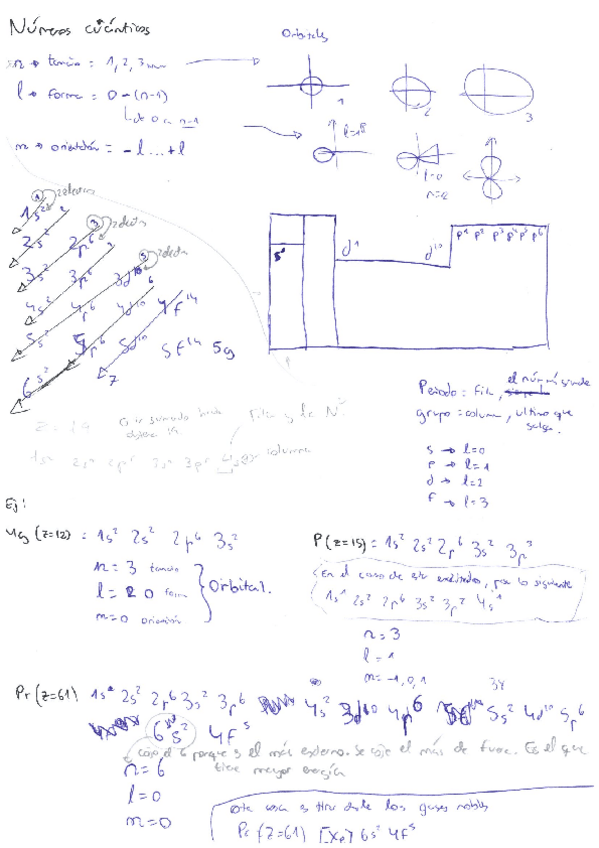 Números cuánticos
n → tamaño = 1, 2, 3
l → forma = 0 - (n-1)
de 0 a n-1
m → orientación = -l ... +l
Orbitales
1
2
3
l=1
l=0
n=2
1s² 2
2s² 2p⁶
3s² 3p⁶ 3d¹⁰
4s² 4p⁶ 4d¹⁰ 4f¹⁴
5s² 5p⁶ 5d¹⁰ 5f¹⁴ 5g
6s²
7
s¹
d¹ d¹⁰
p¹ p² p³ p⁴ p⁵ p⁶
Periodo: Fila, el núm más grande
grupo = columna, ultimo que salga.
s → l=0
p → l=1
d → l=2
f → l=3
Z = 19
Fila y la Nº
columna
Ej:
Mg (z=12) = 1s² 2s² 2p⁶ 3s²
n = 3 tamaño
l = 0 forma
m=0 orientación
Orbital.
P (z=15) = 1s² 2s² 2p⁶ 3s² 3p³
En el caso de estar excitado, pon lo siguiente
1s² 2s² 2p⁶ 3s² 3p² 4s¹
n=3
l=1
m=-1,0,1
Pr (z=61) 1s² 2s² 2p⁶ 3s² 3p⁶ 4s² 3d¹⁰ 4p⁶ 5s² 4d¹⁰ 5p⁶
6s² 4f⁵
cojo el 6 porque es el más externo. Se coje el más de fuera. Es el que
tiene mayor energía
n=6
l=0
m=0
este cosa es tirar desde los gases nobles
Pr (z=61) [Xe] 6s² 4f⁵